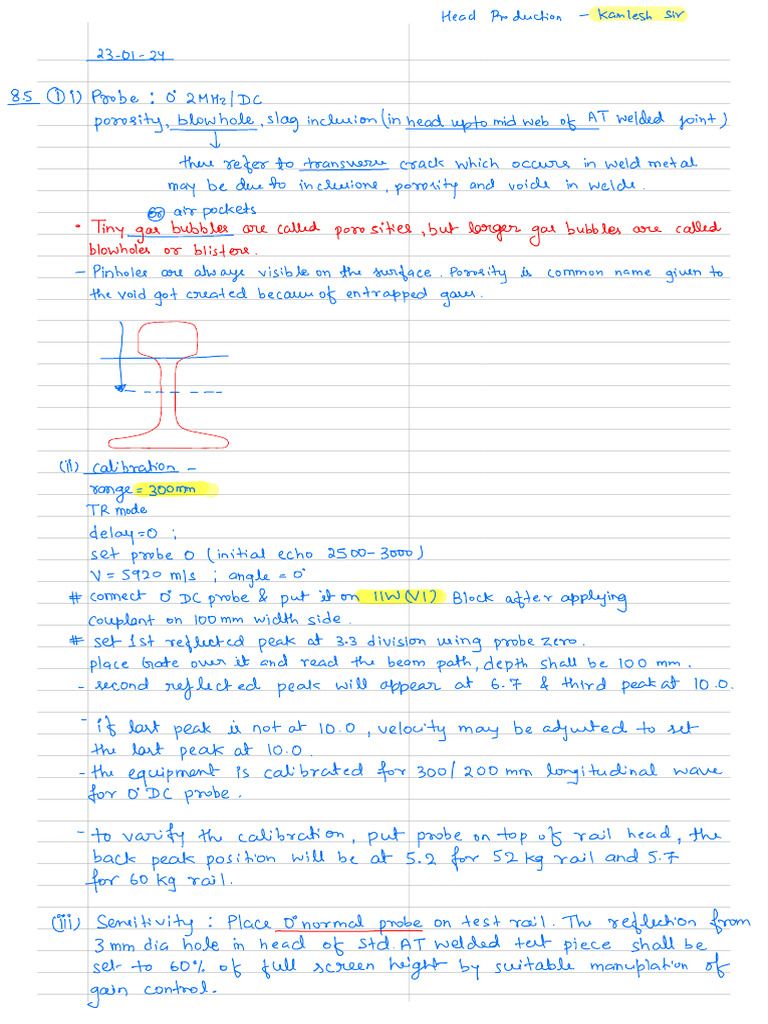 Head Production - Kamlesh Sir
23-01-24
8.5 ① i) Probe : 0° 2MHz/DC
porosity, blowhole, slag inclusion (in head upto mid web of AT welded joint)
there refer to transverse crack which occurs in weld metal
may be due to inclusions, porosity and voids in welds.
or air pockets
• Tiny gas bubbles are called porosities, but larger gas bubbles are called
blowholes or blisters.
- Pinholes are always visible on the surface. Porosity is common name given to
the void got created because of entrapped gases.
(ii) calibration -
range = 300mm
TR mode
delay=0 ;
set probe 0 (initial echo 2500-3000)
V = 5920 m/s ; angle = 0°
# connect 0° DC probe & put it on IIW(V1) Block after applying
couplant on 100 mm width side.
# set 1st reflected peak at 3.3 division using probe zero.
place Gate over it and read the beam path, depth shall be 100 mm.
- second reflected peak will appear at 6.7 & third peak at 10.0.
- if last peak is not at 10.0, velocity may be adjusted to set
the last peak at 10.0.
- the equipment is calibrated for 300/200 mm longitudinal wave
for 0° DC probe.
- to varify the calibration, put probe on top of rail head, the
back peak position will be at 5.2 for 52 kg rail and 5.7
for 60 kg rail.
(iii) Sensitivity : Place 0° normal probe on test rail. The reflection from
3 mm dia hole in head of Std. AT welded test piece shall be
set to 60% of full screen height by suitable manuplation of
gain control.